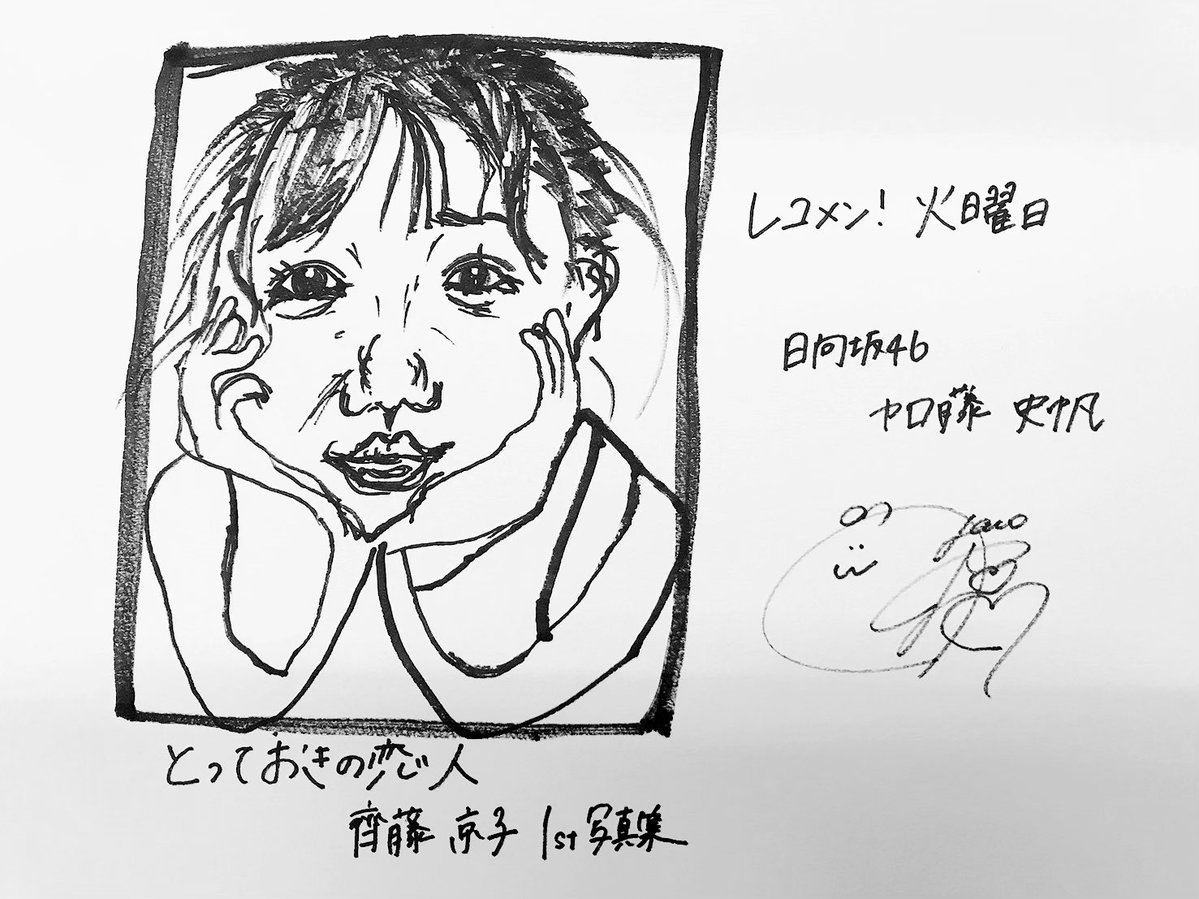 レコメン! 火曜日
日向坂46
加藤 史帆
とっておきの恋人
齊藤 京子 1st 写真集